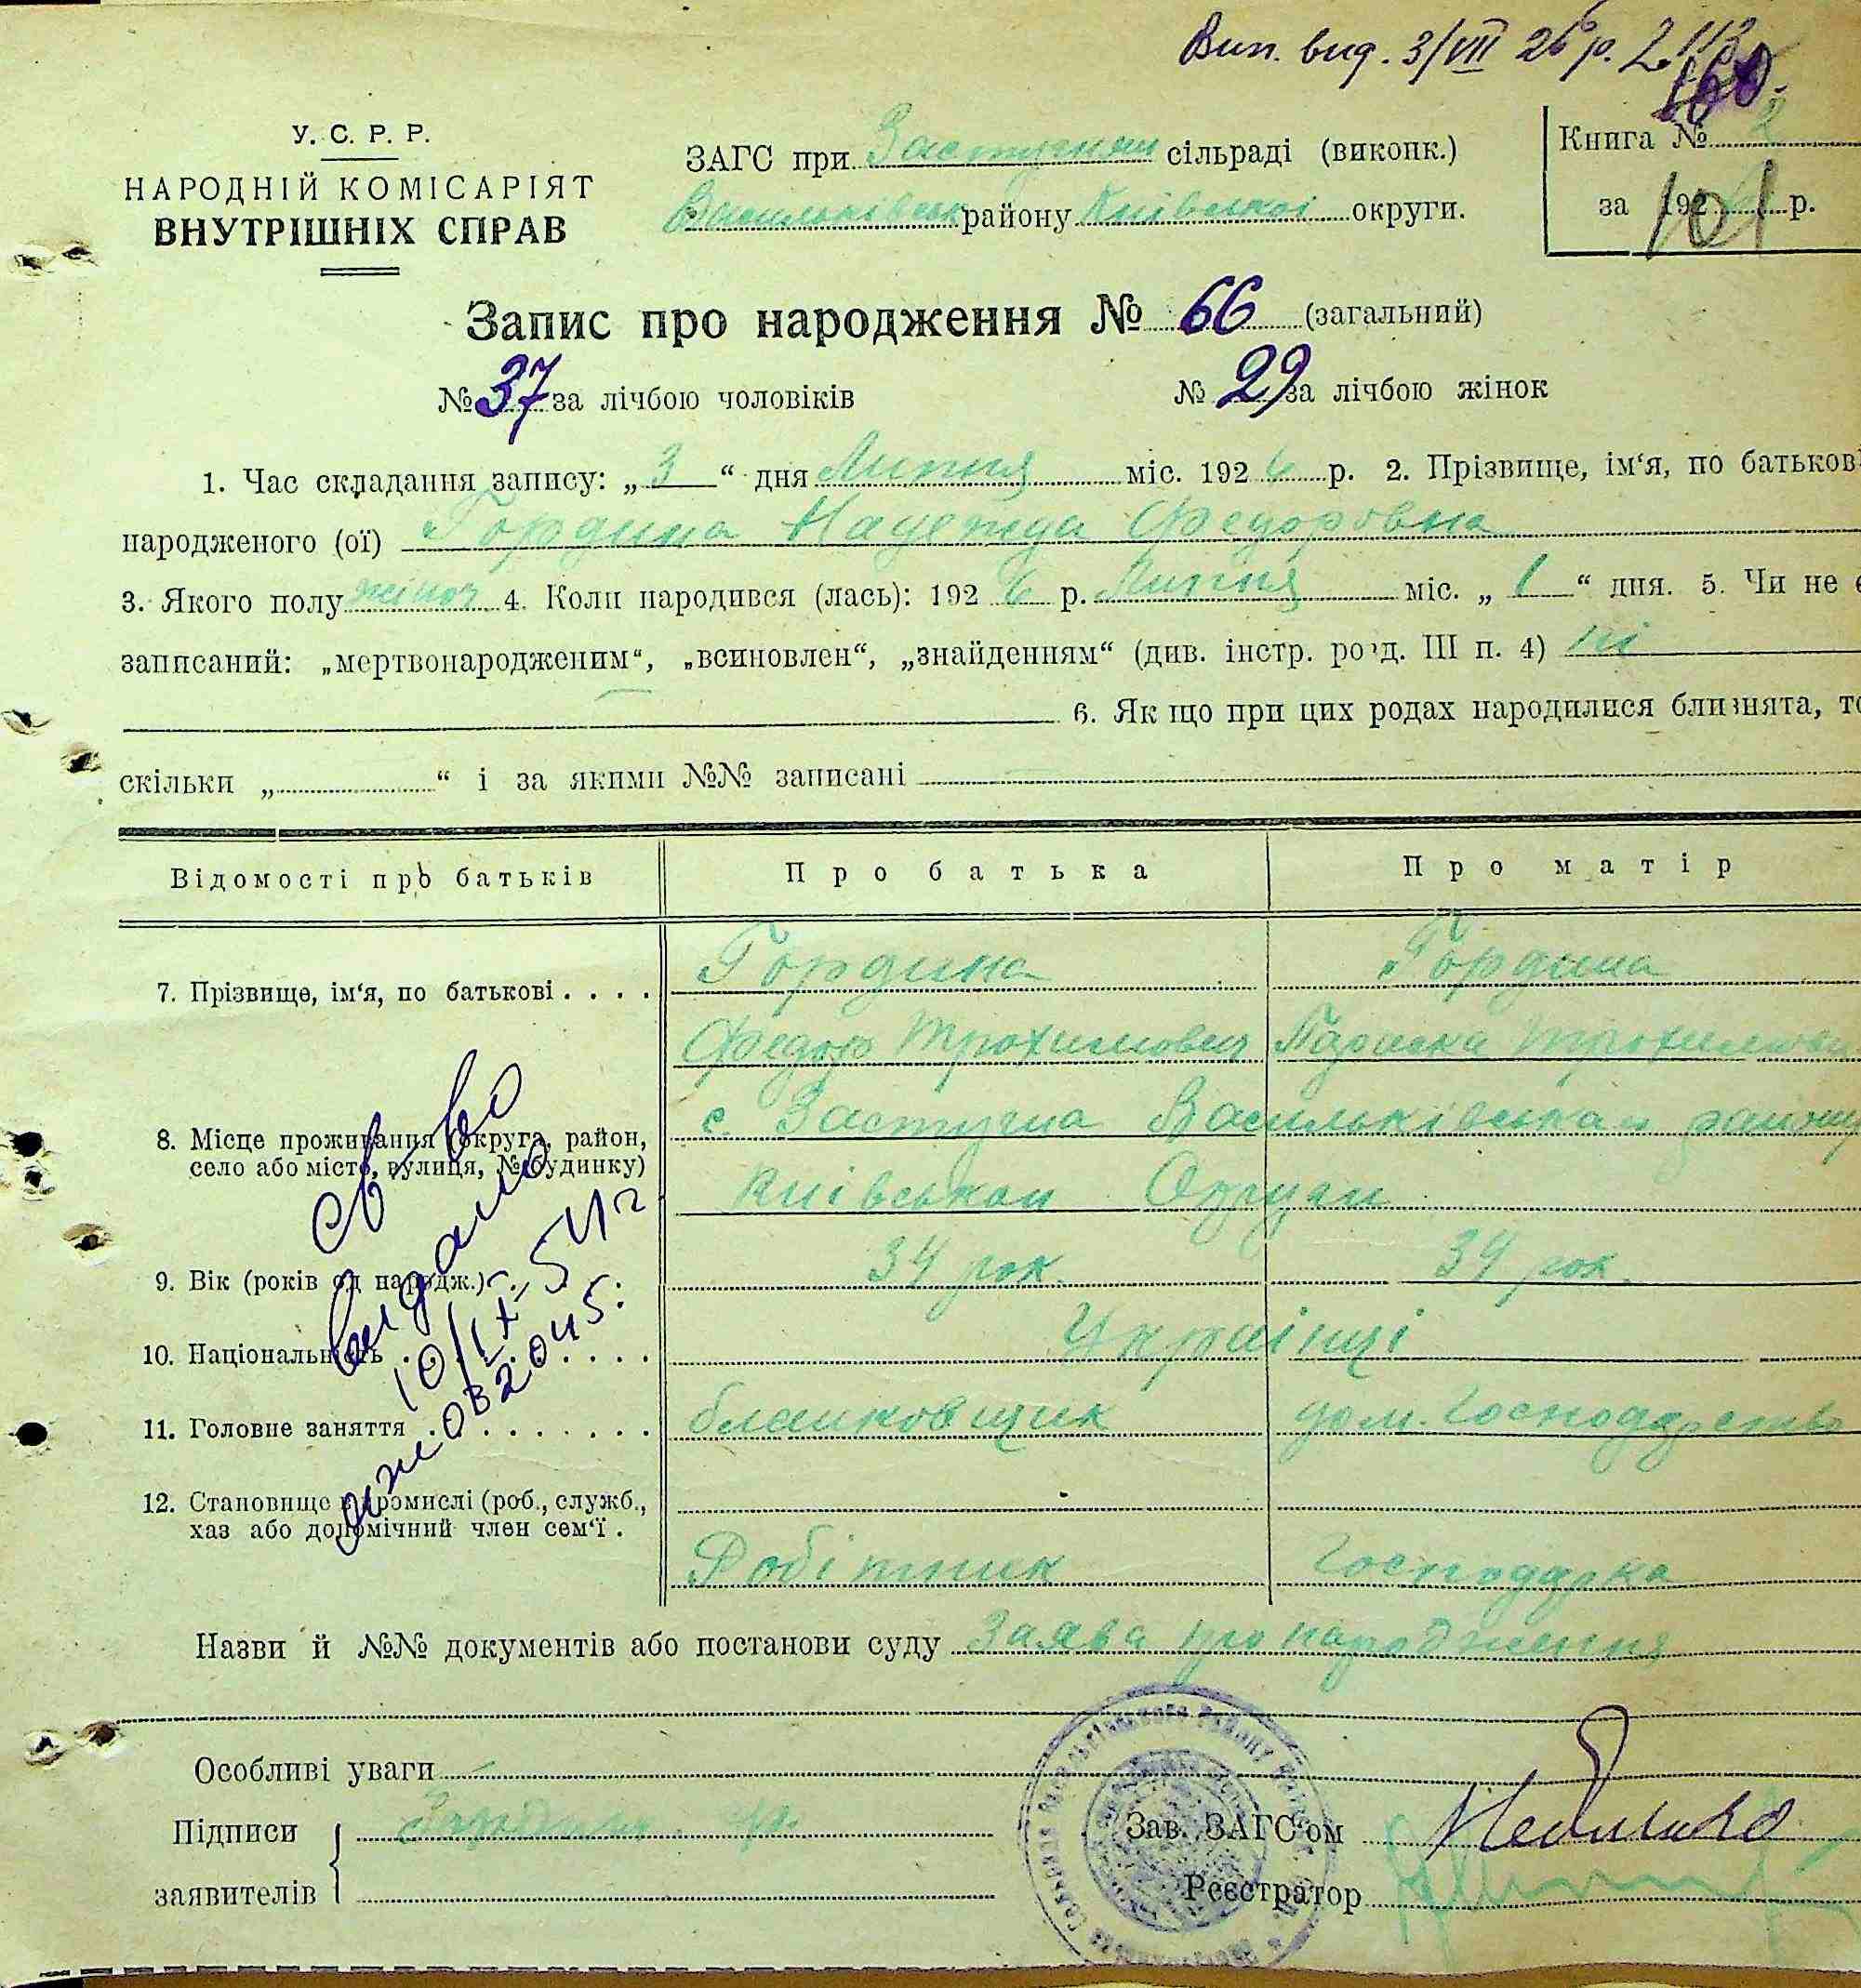 Вип. вид. 3/VII 26 р. 2.113
160.
У. С. Р. Р.
НАРОДНІЙ КОМІСАРІЯТ
ВНУТРІШНІХ СПРАВ
ЗАГС при сільраді (виконк.)
району Київської округи.
Книга № 2
за 192 р.
101
Запис про народження № 66 (загальний)
№ 37 за лічбою чоловіків № 29 за лічбою жінок
1. Час складання запису: „ 3 “ дня Липня міс. 192 6 р. 2. Прізвище, ім‘я, по батькові
народженого (ої) Гордина Надежда Федоровна
3. Якого полу жіноч 4. Коли народився (лась): 192 6 р. Липня міс. „ 1 “ дня. 5. Чи не є
записаний: „мертвонародженим“, „всиновлен“, „знайденням“ (див. інстр. розд. III п. 4) ні
6. Якщо при цих родах народилися близнята, то
скільки „ “ і за якими №№ записані
Відомості про батьків Про батька Про матір
7. Прізвище, ім‘я, по батькові . . . . Гордина Гордина
Федор Трохимович Параска
8. Місце проживання (округа, район,
село або місто, вулиця, № будинку)
с. Застугна Васильківськаи району
Київськаи Округи
9. Вік (років од народж.) 34 рок. 34 рок.
10. Національність . . . . Українці
11. Головне заняття . . . . . . . . дом. Господарство
12. Становище в промислі (роб., служб.,
хаз або допомічний член сем‘ї .
Робітник Господарка
св-во
видано
10/IX-54 г
032045.
Назви й №№ документів або постанови суду Заява про народження
Особливі уваги
Підписи
заявителів
Зав. ЗАГС‘ом
Реєстратор